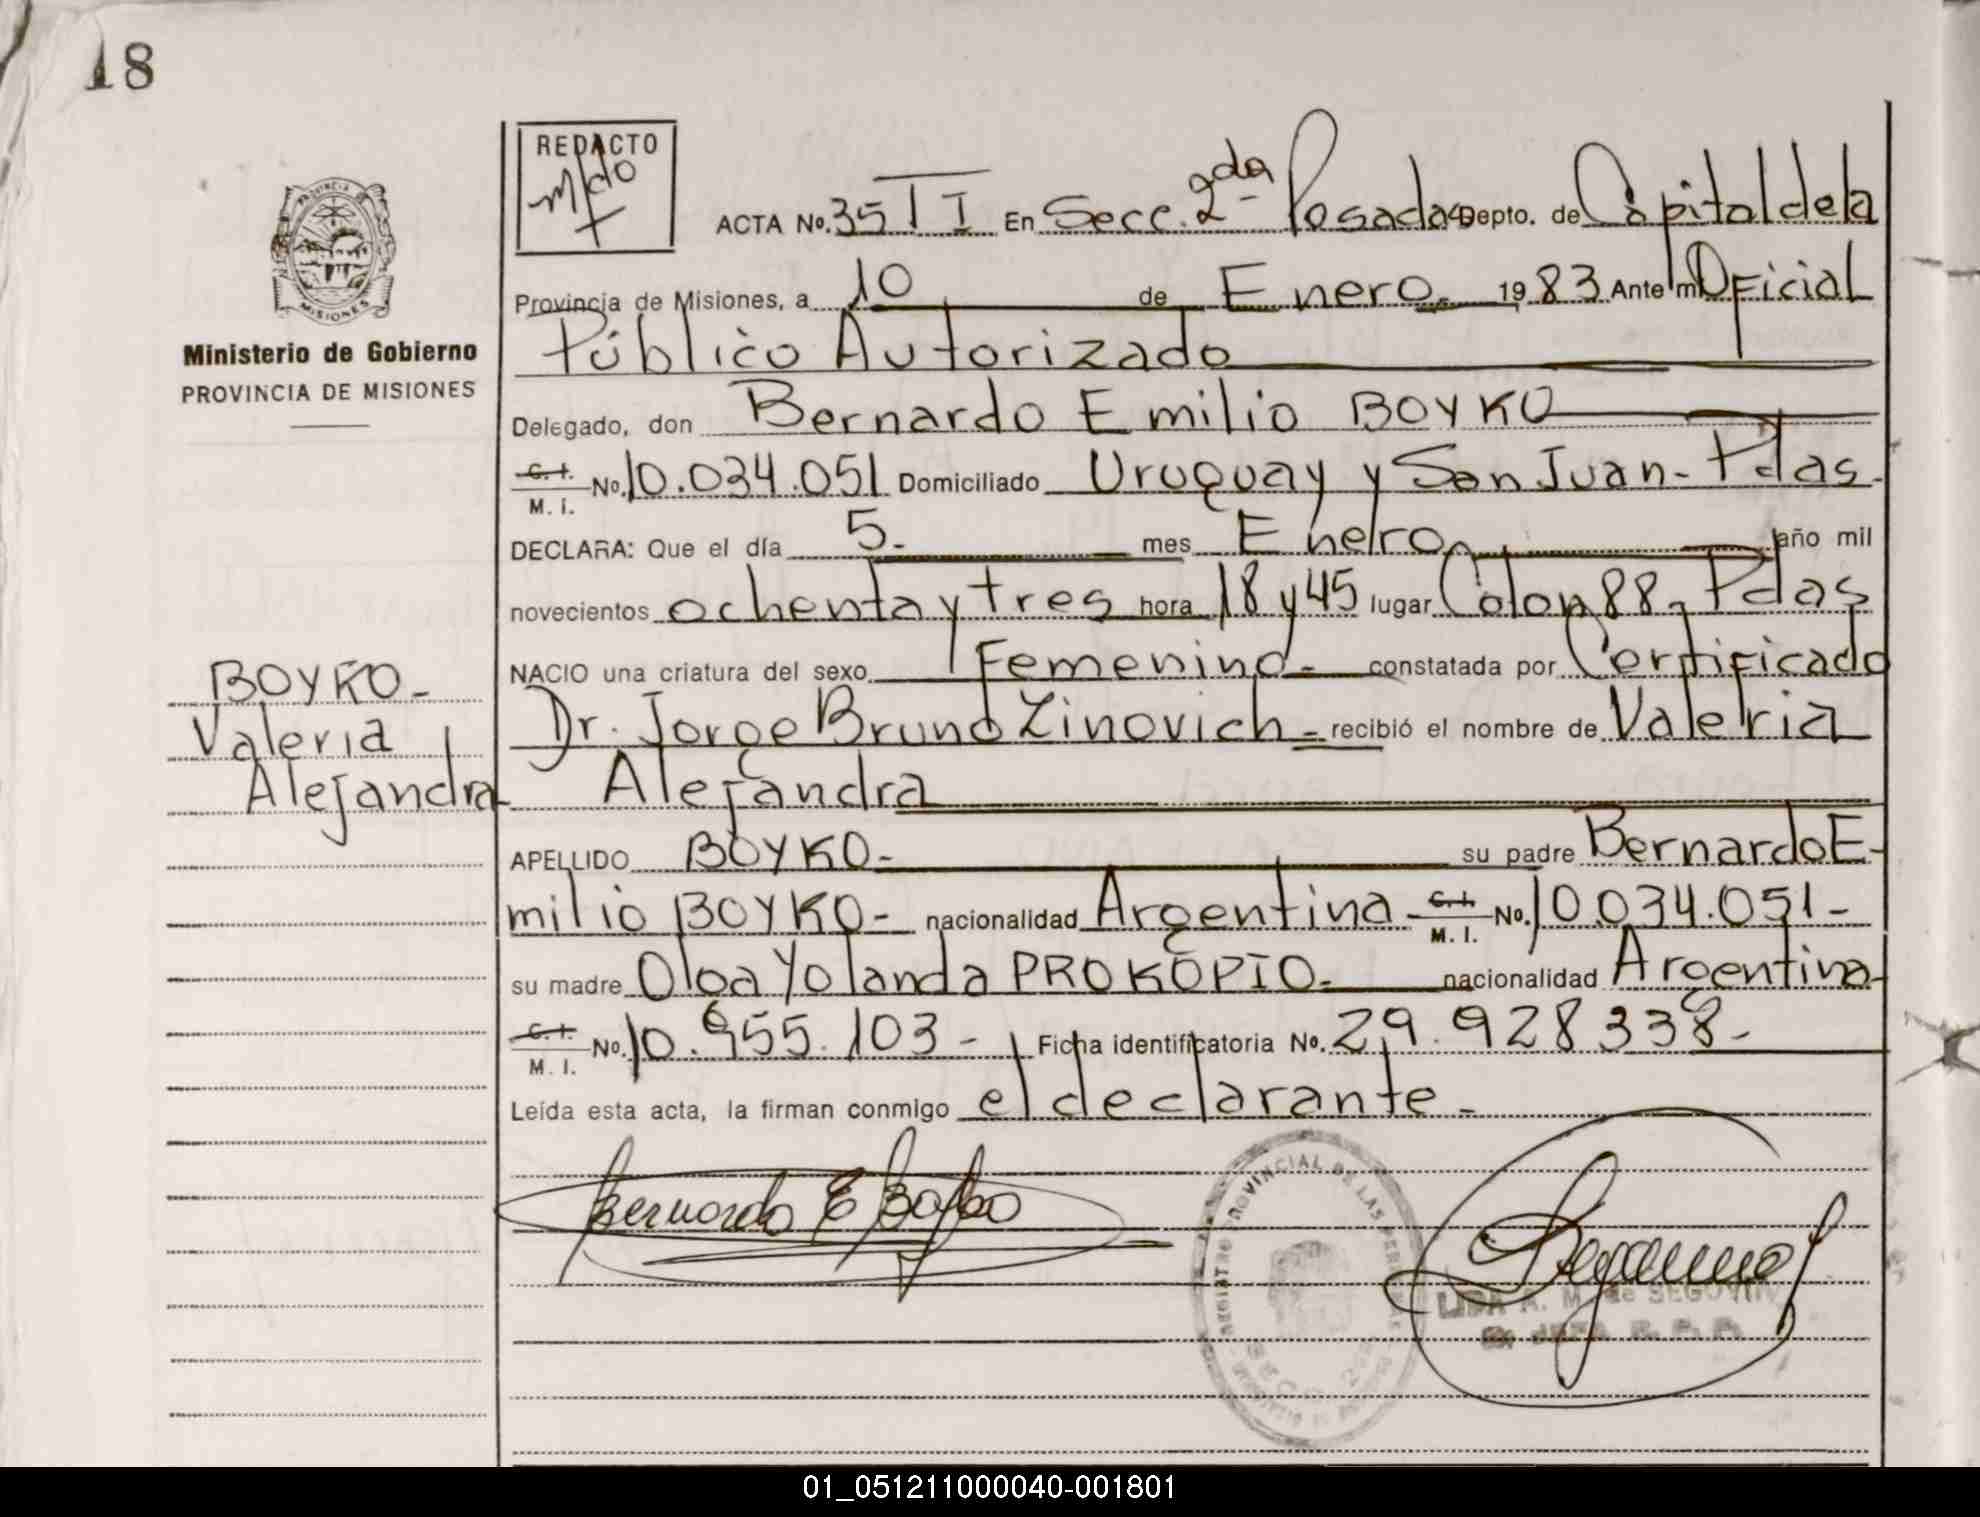 18
REDACTO
PROVINCIA DE
MISIONES
Ministerio de Gobierno
PROVINCIA DE MISIONES
ACTA No. 35 T I En Secc. 2da Posadas Depto. de Capital de la
Provincia de Misiones, a 10 de Enero. 19 83 Ante mí Oficial
Público Autorizado
Delegado, don Bernardo Emilio BOYKO
C. I. M. I. No. 10.034.051 Domiciliado Uruguay y San Juan- Pdas.
DECLARA: Que el día 5. mes Enero año mil
novecientos ochenta y tres hora 18 y 45 lugar Colon 88- Pdas
NACIO una criatura del sexo Femenino- constatada por Certificado
Dr. Jorge Bruno Zinovich- recibió el nombre de Valeria
Alejandra
APELLIDO BOYKO- su padre Bernardo E-
milio BOYKO- nacionalidad Argentina- C. I. M. I. No. 10.034.051-
su madre Olga Yolanda PROKOPIO- nacionalidad Argentina-
C. I. M. I. No. 10. 55.103- Ficha identificatoria No. 29.928338-
Leída esta acta, la firman conmigo el declarante-
BOYKO-
Valeria
Alejandra
Bernardo E Boyko
REGISTRO PROVINCIAL DE LAS PERSONAS
SECC. 2da
LIDA A. M. de SEGOVIA
01_051211000040-001801